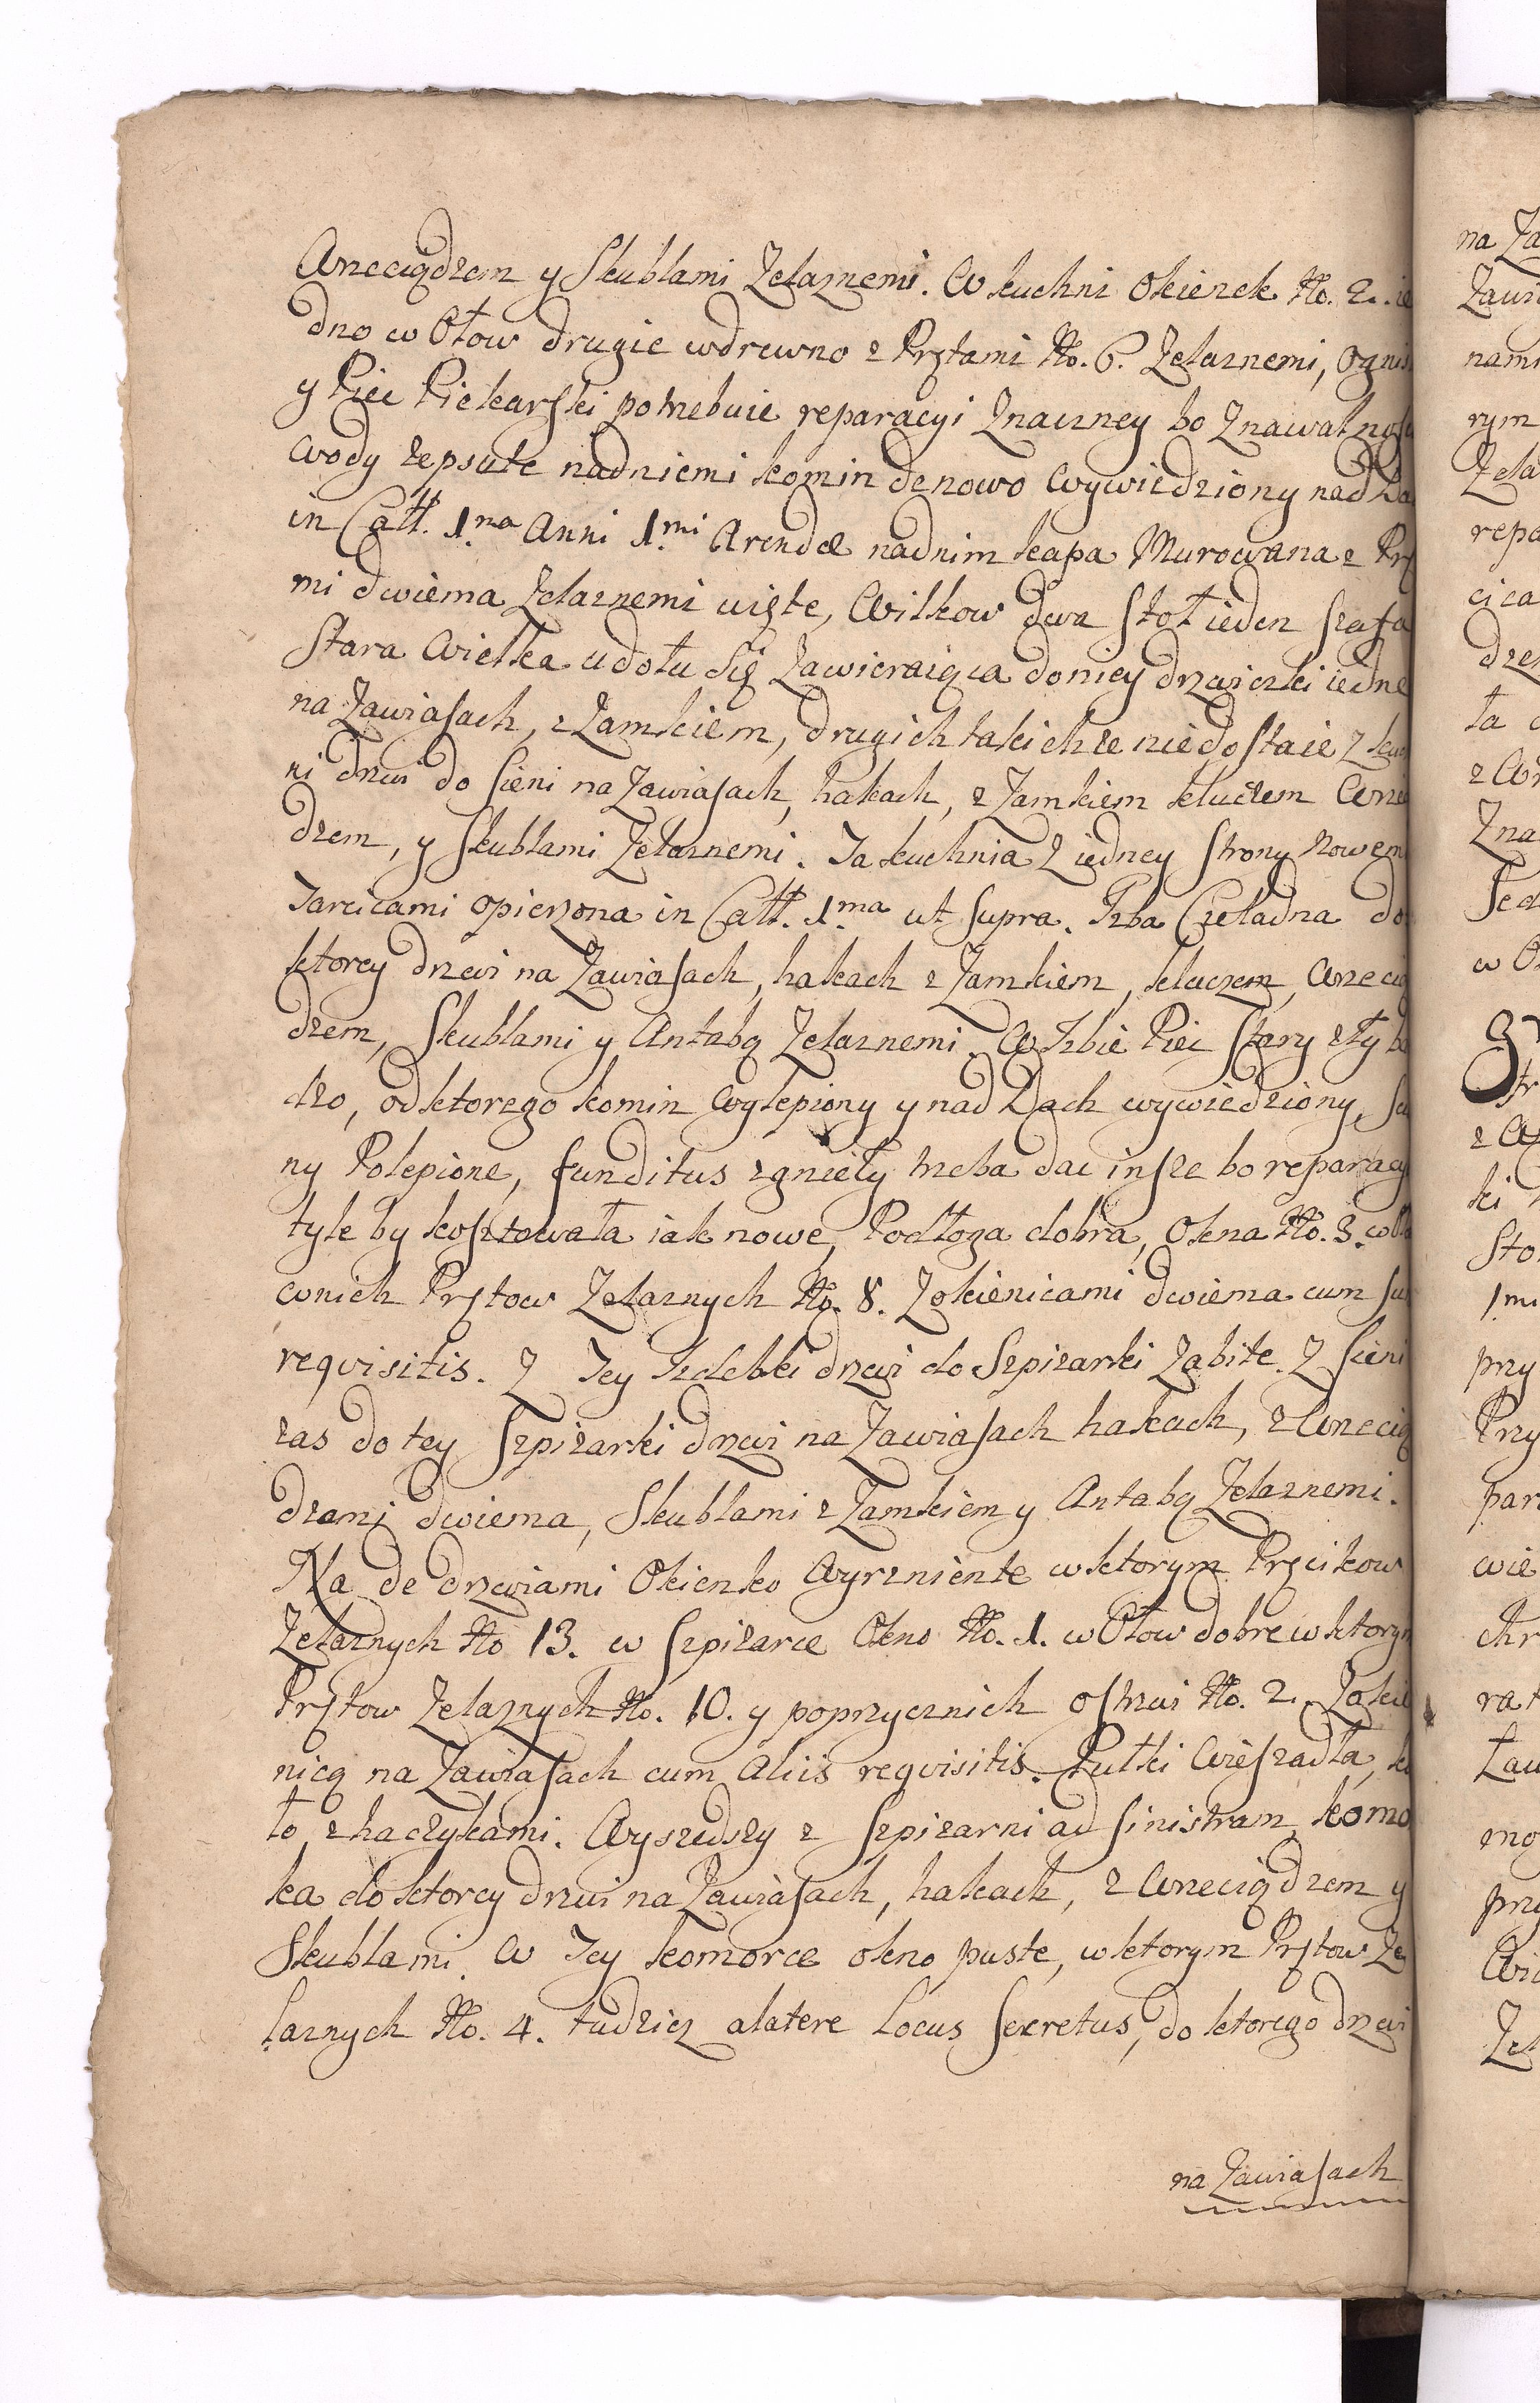 Wrzeciądzem y Skublami Zelaznemi. W kuchni Okienek No. 2. ie
dno w Ołow drugie wdrewno z Prętami No. 6. Zelaznemi, Ognis
y Piec Piekarski potrzebuie reparacyi Znaczney bo Znawałnos
Wody zepsute nadniemi komin denowo Wywiedziony nad Da
in Catt. 1.ma Anni 1.mi Arendæ nadnim kapa Murowana z Prę
mi dwiema Zelaznemi uięte, Wilkow dwa Stoł ieden Szafa
Stara Wielka udołu Się Zawieraiąca doniey drzwiczki iedne
na Zawiasach, z Zamkiem, drugich takichze niedostaie Z kuch
ni drzwi do Sieni na Zawiasach, hakach, z Zamkiem kluczem Wrzeci
dzem, y Skublami Zelaznemi. Ta kuchnia Z iedney Strony Nowem
Tarcicami opierzona in Catt. 1.ma ut Supra. Izba Czeladna do
ktorey drzwi na Zawiasach, hakach z Zamkiem, kluczem, Wrzecią
dzem, Skublami y Antabą Zelaznemi. W Izbie Piec Stary zły ba
dzo, od ktorego komin Wylepiony y nad Dach wywiedziony, Scia
ny Polepione, funditus zgnieły trzeba dac insze bo reparacy
tyle by kosztowała iak nowe, Podłoga dobra, Okna No. 3. wOło
wnich Prętow Zelaznych No. 8. Zokienicami dwiema cum su
reqvisitis. Z Tey Izdebki drzwi do Szpizarki Zabite. Z Sieni
zas do tey Szpizarki drzwi na Zawiasach hakach, z Wrzecią
dzami dwiema, Skublami z Zamkiem y Antabą Zelaznemi.
Na de drzwiami Okienko Wyrzniente wktorym Pręcikow
Zelaznych No 13. w Szpizarce Okno No. 1. wOłow dobre wktorym
Prętow Zelaznych No. 10. y poprzycznich ostrwi No. 2. Zokie
nicą na Zawiasach cum Aliis reqvisitis. Pułki Wieszadła, ko
ło z haczykami. Wyszedszy z Szpizarni ad Sinistram komo
ka do ktorey drzwi na Zawiasach, hakach, z Wrzeciądzem y
Skublami. W Tey komorce okno puste, wktorym Prętow Ze
laznych No. 4. tudziez alatere Locus Secretus, do ktorego drzwi
na Zawiasach